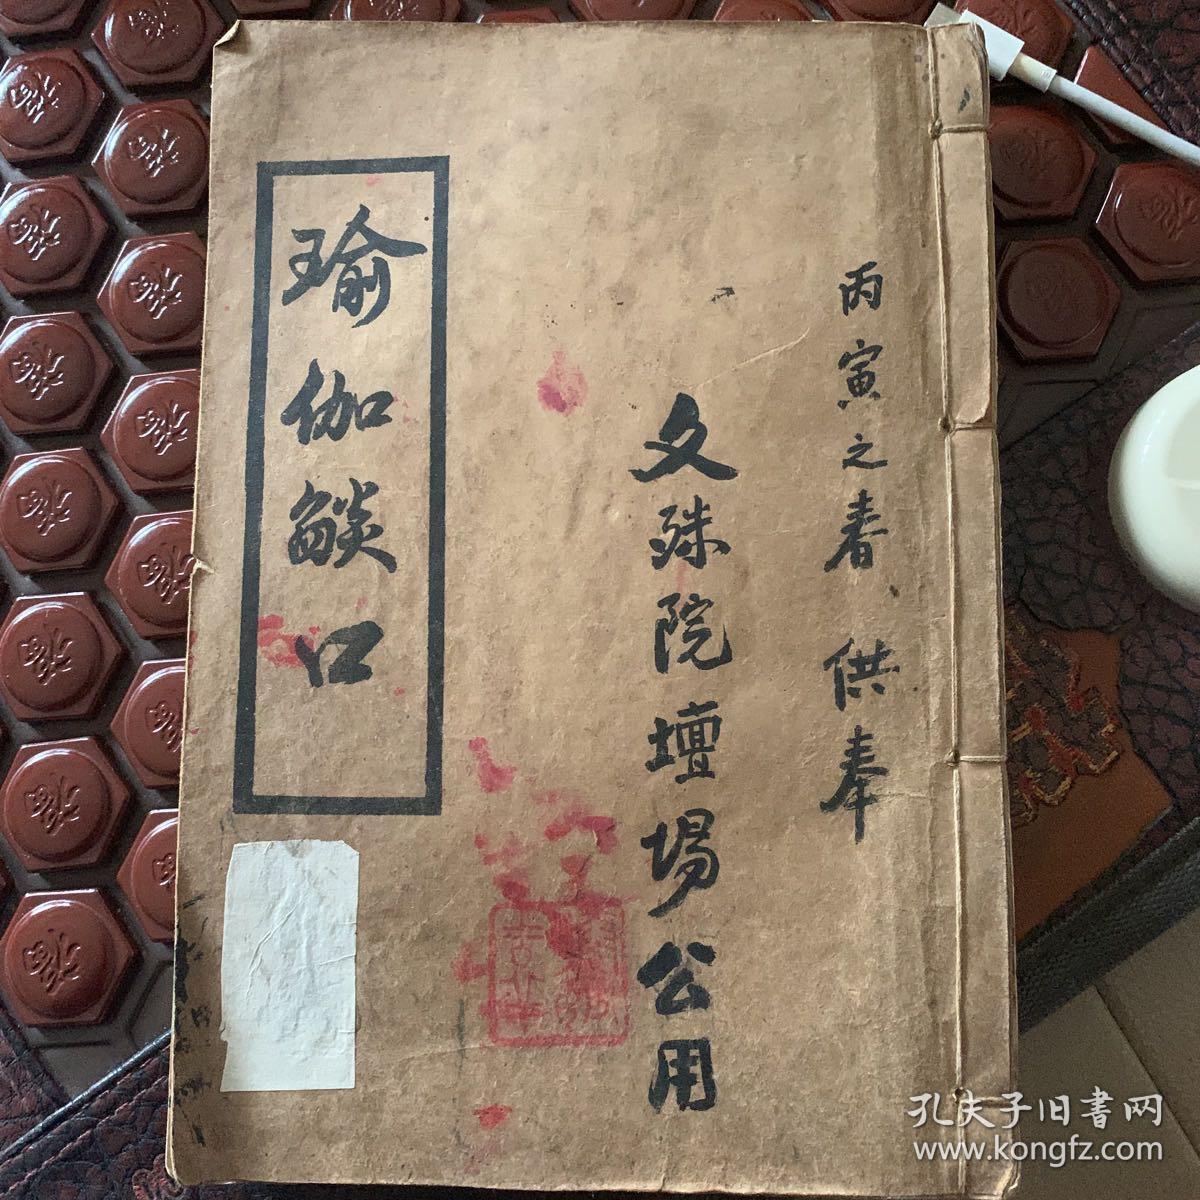 丙寅之春 供奉
文殊院壇場公用
瑜伽燄口
孔夫子旧書网
www.kongfz.com